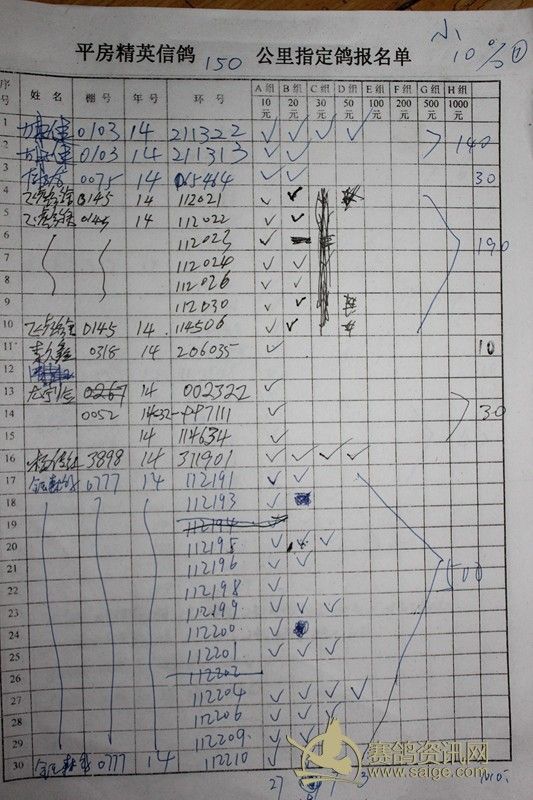 小
10% ①
平房精英信鸽 150 公里指定鸽报名单
序号 姓名 棚号 年号 环号 A组 10元 B组 20元 C组 30元 D组 50元 E组 100元 F组 200元 G组 500元 H组 1000元
1 0103 14 211322 ✓ ✓ ✓ ✓ 140
2 0103 14 211313 ✓ ✓
3 0075 14 015464 ✓ ✓ 30
4 0145 14 112021 ✓ ✓
5 0145 14 112022 ✓ ✓
6 112023 ✓ 190
7 112024 ✓ ✓
8 112026 ✓ ✓
9 112030 ✓ ✓
10 0145 14 114506 ✓ ✓
11 0318 14 206035 ✓ 10
12
13 0267 14 002322 ✓
14 0052 ✓ 30
15 14 114634 ✓
16 3898 14 311901 ✓ ✓ ✓ ✓
17 0777 14 112191 ✓ ✓
18 112193 ✓
19 112194
20 112195 ✓ ✓ ✓
21 112196 ✓ ✓ 500
22 112198 ✓
23 112199 ✓ ✓ ✓
24 112200 ✓
25 112201 ✓ ✓ ✓
26 112202
27 112204 ✓ ✓ ✓ ✓
28 112206 ✓ ✓ ✓
29 112209 ✓ ✓ ✓
30 0777 14 112210 ✓ ✓
27
赛鸽资讯网
www.saige.com